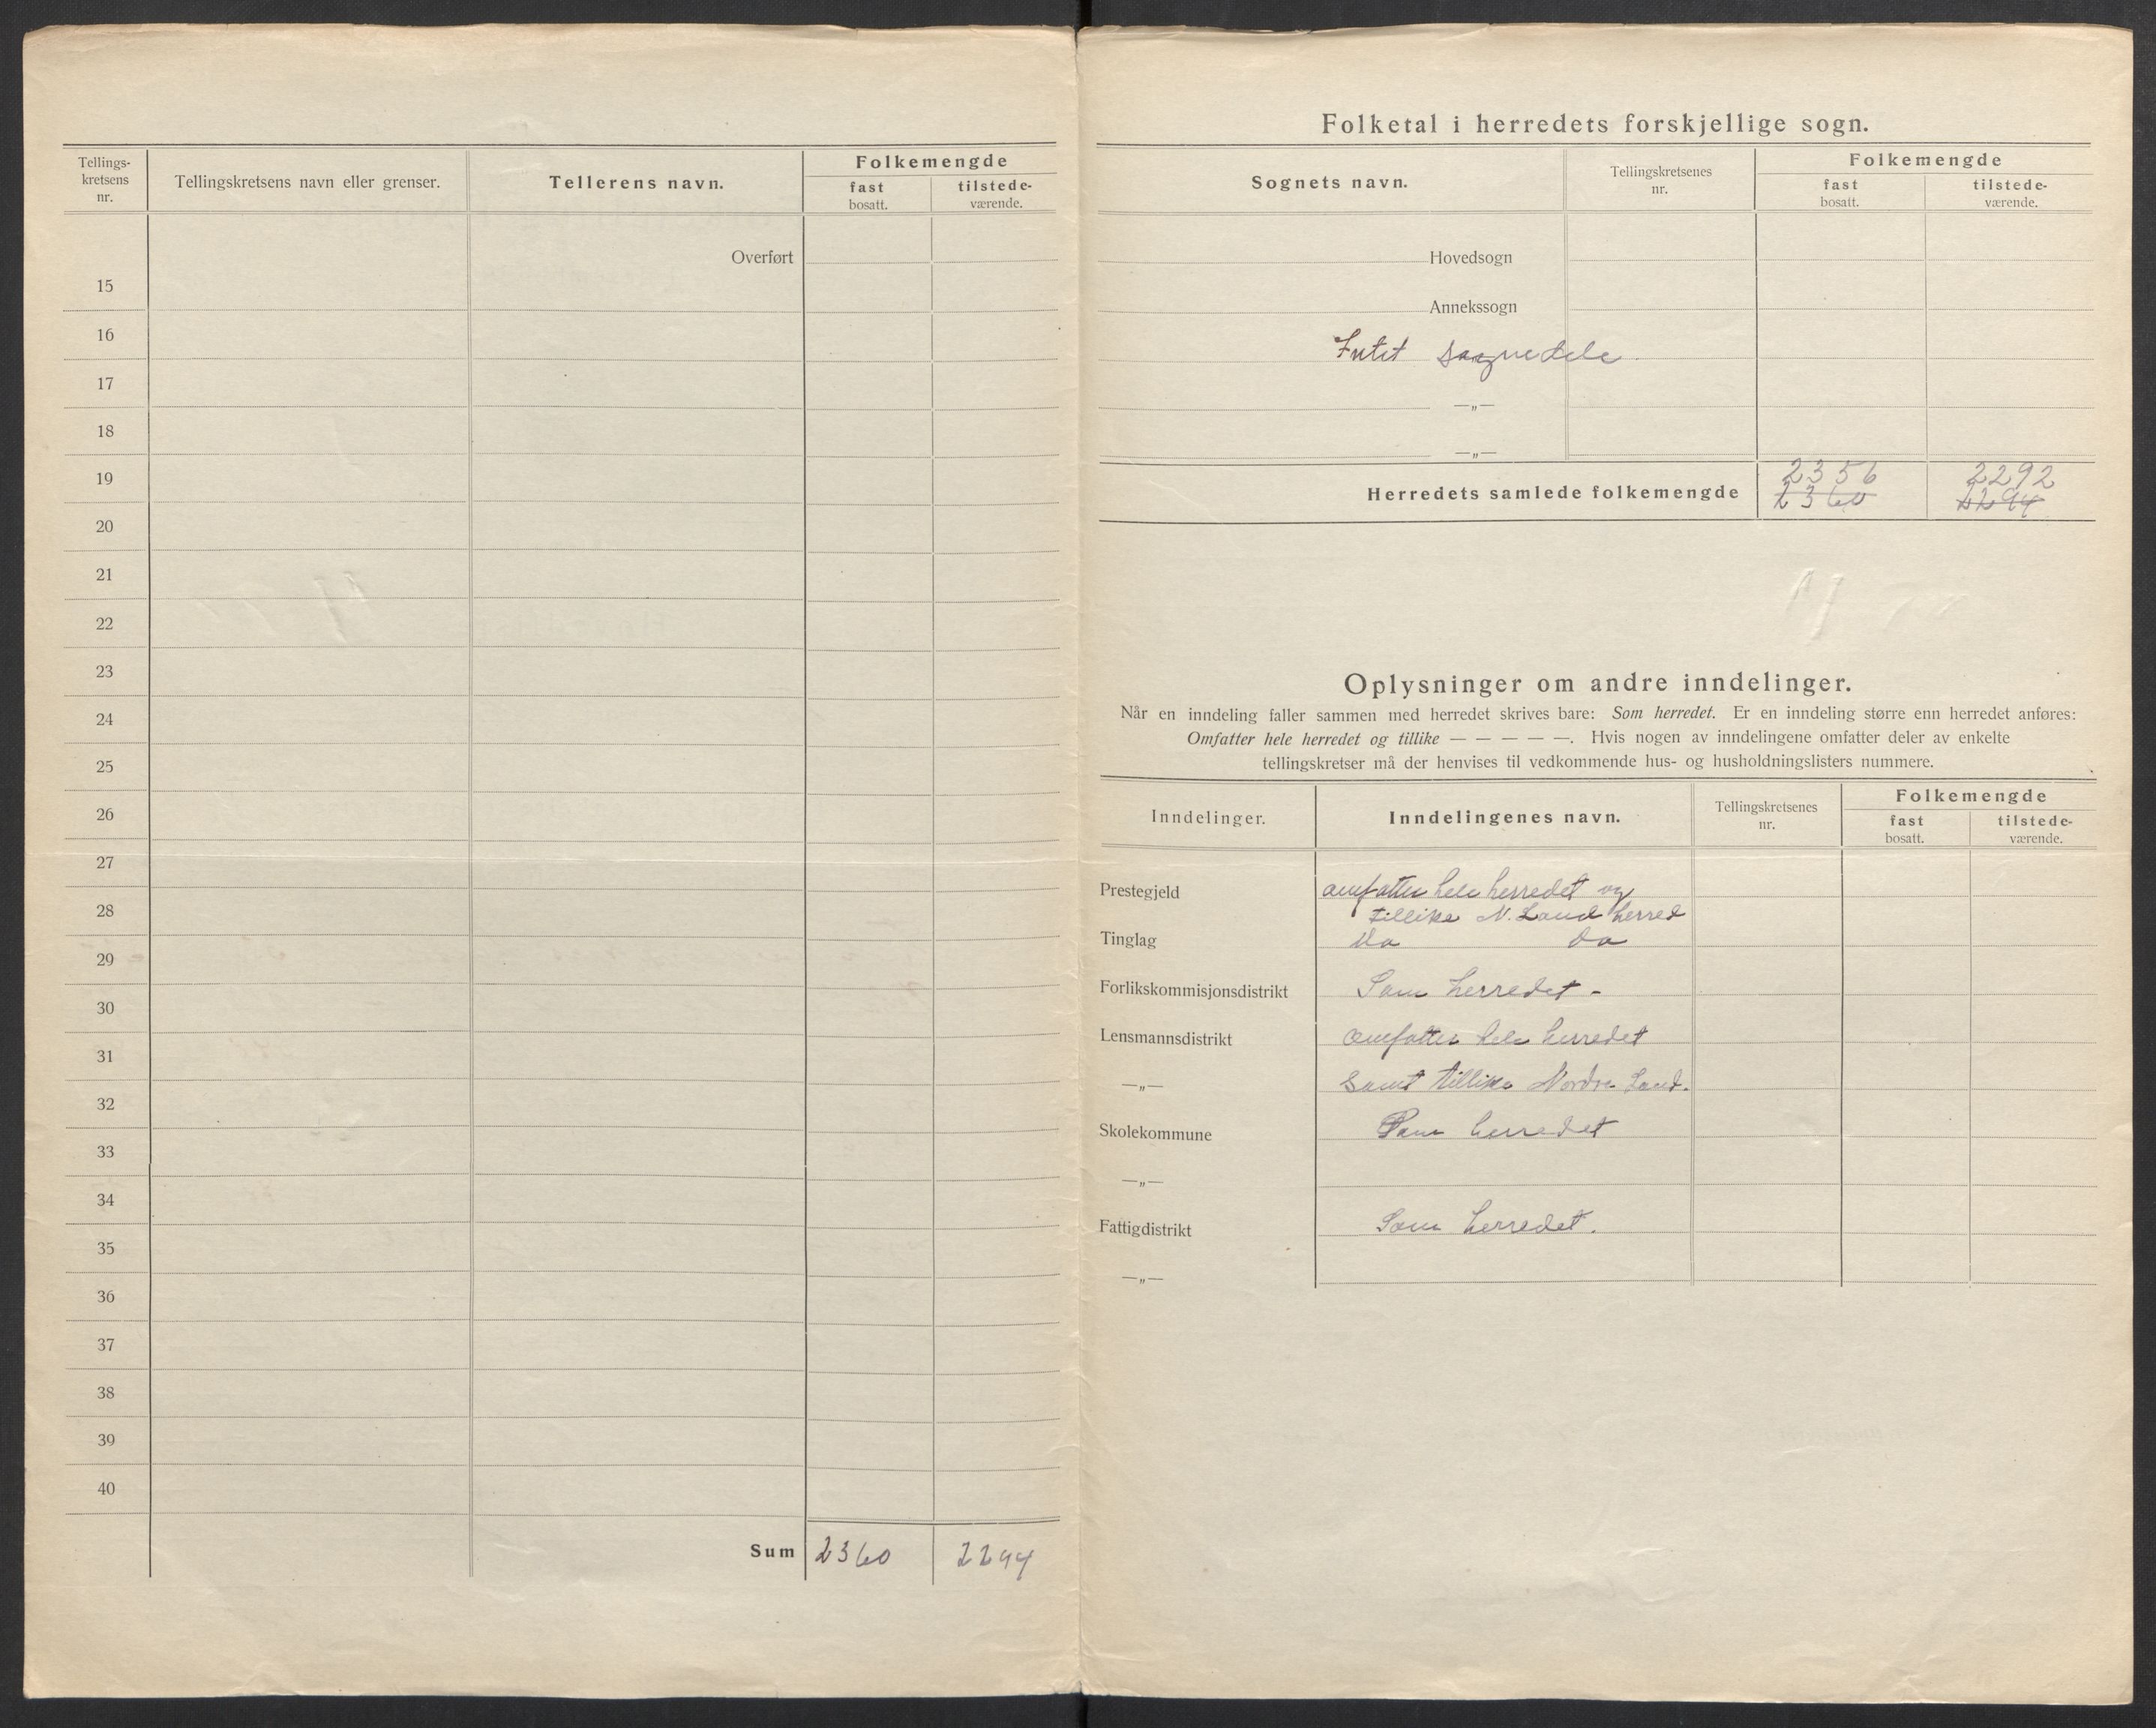 Tellings-
kretsens
nr.
Tellingskretsens navn eller grenser.
Tellerens navn.
Folkemengde
fast
bosatt.
tilstede-
værende.
Overført
15
16
17
18
19
20
21
22
23
24
25
26
27
28
29
30
31
32
33
34
35
36
37
38
39
40
Sum 2360 2294
Folketal i herredets forskjellige sogn.
Sognets navn.
Tellingskretsenes
nr.
Folkemengde
fast
bosatt.
tilstede-
værende.
Hovedsogn
Annekssogn
Intet sognedele.
—„—
—„—
2356 2292
Herredets samlede folkemengde 2360 2294
Oplysninger om andre inndelinger.
Når en inndeling faller sammen med herredet skrives bare: Som herredet. Er en inndeling større enn herredet anføres:
Omfatter hele herredet og tillike — — — — —. Hvis nogen av inndelingene omfatter deler av enkelte
tellingskretser må der henvises til vedkommende hus- og husholdningslisters nummere.
Inndelinger.
Inndelingenes navn.
Tellingskretsenes
nr.
Folkemengde
fast
bosatt.
tilstede-
værende.
Prestegjeld omfatter hele herredet og
tillike N. Land herred
Tinglag Do Do
Forlikskommisjonsdistrikt Som herredet -
Lensmannsdistrikt Omfatter hele herredet
—„— samt tillike Nordre Land.
Skolekommune Som herredet
—„—
Fattigdistrikt Som herredet.
—„—